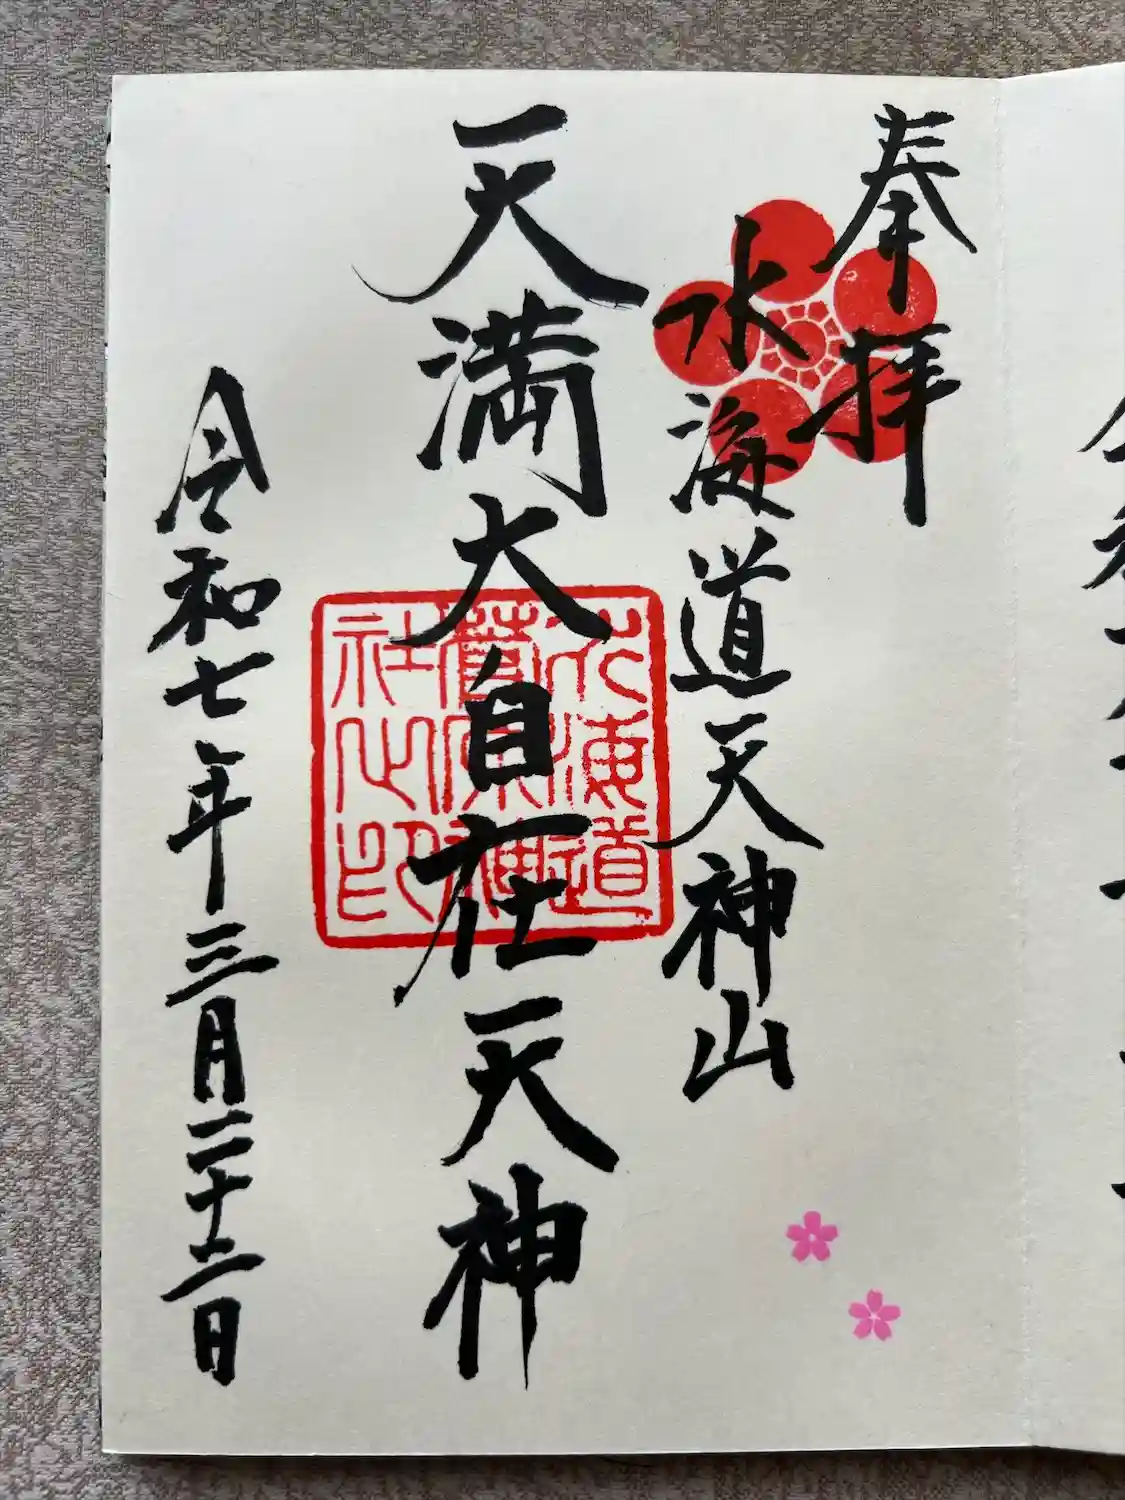 奉拝
水海道天神山
天満大自在天神
水海道
菅原神
社之印
令和七年三月二十二日